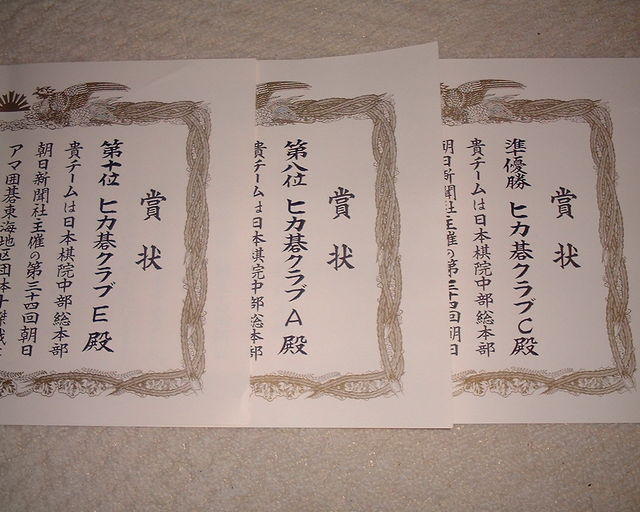 賞状
準優勝 ヒカ碁クラブC殿
貴チームは日本棋院中部総本部
朝日新聞社主催の第三十四回朝日
賞状
第八位 ヒカ碁クラブA殿
貴チームは日本棋院中部総本部
賞状
第十位 ヒカ碁クラブE殿
貴チームは日本棋院中部総本部
朝日新聞社主催の第三十四回朝日
アマ囲碁東海地区団体十傑戦